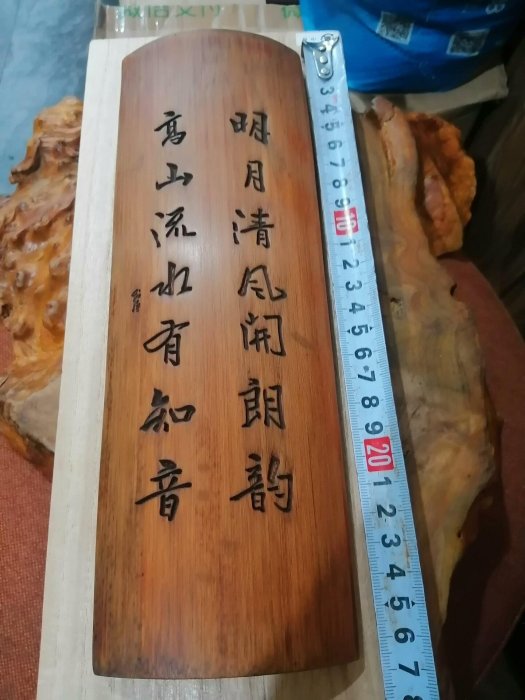 明月清风开朗韵
高山流水有知音
3 4 5 6 7 8 9 10 1 2 3 4 5 6 7 8 9 20 1 2 3 4 5 6 7 8